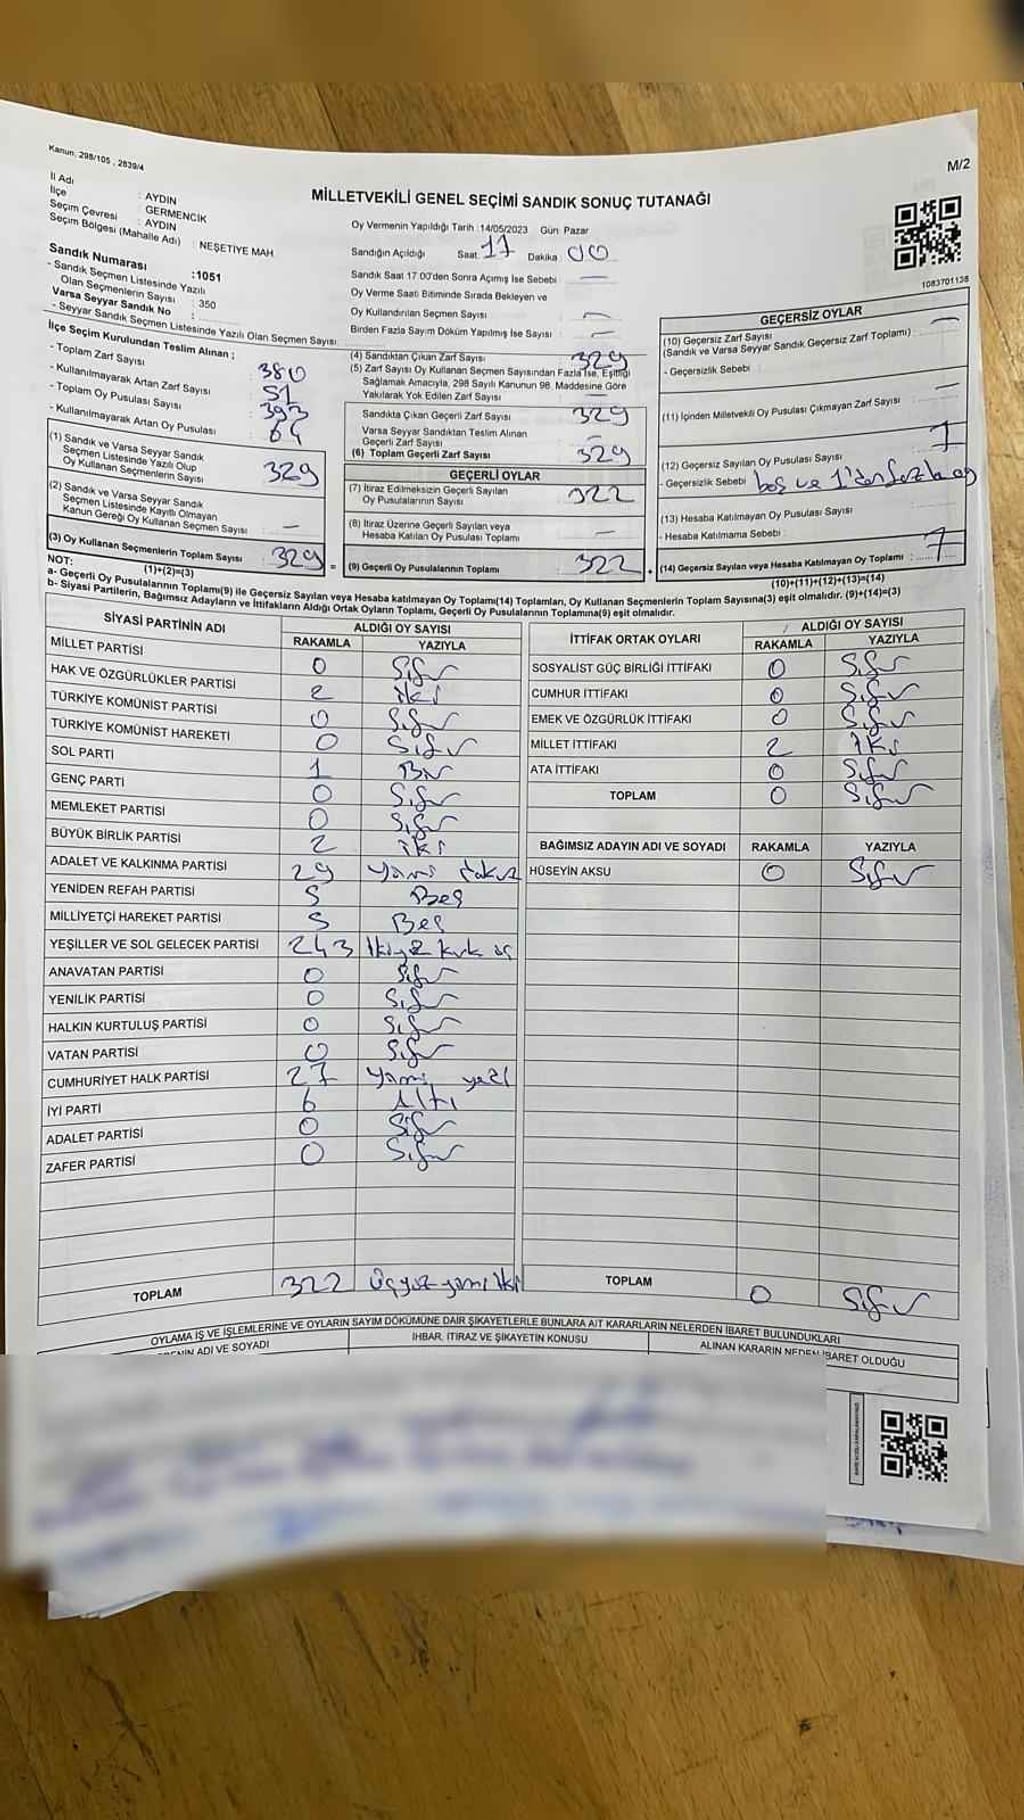 Kanun, 298/105 , 2839/4
M/2
MİLLETVEKİLİ GENEL SEÇİMİ SANDIK SONUÇ TUTANAĞI
İl Adı : AYDIN
İlçe : GERMENCİK
Seçim Çevresi : AYDIN
Seçim Bölgesi (Mahalle Adı) : NEŞETİYE MAH
Sandık Numarası :1051
- Sandık Seçmen Listesinde Yazılı
Olan Seçmenlerin Sayısı : 350
Varsa Seyyar Sandık No :
- Seyyar Sandık Seçmen Listesinde Yazılı Olan Seçmen Sayısı
İlçe Seçim Kurulundan Teslim Alınan ;
- Toplam Zarf Sayısı : 380
- Kullanılmayarak Artan Zarf Sayısı : 51
- Toplam Oy Pusulası Sayısı : 393
- Kullanılmayarak Artan Oy Pusulası : 64
(1) Sandık ve Varsa Seyyar Sandık
Seçmen Listesinde Yazılı Olup
Oy Kullanan Seçmenlerin Sayısı : 329
(2) Sandık ve Varsa Seyyar Sandık
Seçmen Listesinde Kayıtlı Olmayan
Kanun Gereği Oy Kullanan Seçmen Sayısı : —
(3) Oy Kullanan Seçmenlerin Toplam Sayısı : 329 =
(1)+(2)=(3)
Oy Vermenin Yapıldığı Tarih :14/05/2023 Gün: Pazar
Sandığın Açıldığı Saat: 17 Dakika: 00
Sandık Saat 17.00'den Sonra Açımış İse Sebebi : —
Oy Verme Saati Bitiminde Sırada Bekleyen ve
Oy Kullandırılan Seçmen Sayısı : —
Birden Fazla Sayım Döküm Yapılmış İse Sayısı : —
(4) Sandıktan Çıkan Zarf Sayısı : 329
(5) Zarf Sayısı Oy Kullanan Seçmen Sayısından Fazla İse, Eşitliği
Sağlamak Amacıyla, 298 Sayılı Kanunun 98. Maddesine Göre
Yakılarak Yok Edilen Zarf Sayısı : —
Sandıkta Çıkan Geçerli Zarf Sayısı : 329
Varsa Seyyar Sandıktan Teslim Alınan
Geçerli Zarf Sayısı : —
(6) Toplam Geçerli Zarf Sayısı : 329
GEÇERLİ OYLAR
(7) İtiraz Edilmeksizin Geçerli Sayılan
Oy Pusulalarının Sayısı : 322
(8) İtiraz Üzerine Geçerli Sayılan veya
Hesaba Katılan Oy Pusulası Toplamı : —
(9) Geçerli Oy Pusulalarının Toplamı : 322
1083701138
GEÇERSİZ OYLAR
(10) Geçersiz Zarf Sayısı : —
(Sandık ve Varsa Seyyar Sandık Geçersiz Zarf Toplamı)
- Geçersizlik Sebebi :
(11) İçinden Milletvekili Oy Pusulası Çıkmayan Zarf Sayısı : —
(12) Geçersiz Sayılan Oy Pusulası Sayısı : 7
- Geçersizlik Sebebi : boş ve 1'den fazla oy
(13) Hesaba Katılmayan Oy Pusulası Sayısı :
- Hesaba Katılmama Sebebi :
(14) Geçersiz Sayılan veya Hesaba Katılmayan Oy Toplamı : 7
(10)+(11)+(12)+(13)=(14)
NOT:
a- Geçerli Oy Pusulalarının Toplamı(9) ile Geçersiz Sayılan veya Hesaba katılmayan Oy Toplamı(14) Toplamları, Oy Kullanan Seçmenlerin Toplam Sayısına(3) eşit olmalıdır. (9)+(14)=(3)
b- Siyasi Partilerin, Bağımsız Adayların ve İttifakların Aldığı Ortak Oyların Toplamı, Geçerli Oy Pusulalarının Toplamına(9) eşit olmalıdır.
SİYASİ PARTİNİN ADI ALDIĞI OY SAYISI
RAKAMLA YAZIYLA
MİLLET PARTİSİ 0 Sıfır
HAK VE ÖZGÜRLÜKLER PARTİSİ 2 iki
TÜRKİYE KOMÜNİST PARTİSİ 0 Sıfır
TÜRKİYE KOMÜNİST HAREKETİ 0 Sıfır
SOL PARTİ 1 Bir
GENÇ PARTİ 0 Sıfır
MEMLEKET PARTİSİ 0 Sıfır
BÜYÜK BİRLİK PARTİSİ 2 iki
ADALET VE KALKINMA PARTİSİ 29 yirmi dokuz
YENİDEN REFAH PARTİSİ 5 Beş
MİLLİYETÇİ HAREKET PARTİSİ 5 Beş
YEŞİLLER VE SOL GELECEK PARTİSİ 243 İkiyüz kırk üç
ANAVATAN PARTİSİ 0 Sıfır
YENİLİK PARTİSİ 0 Sıfır
HALKIN KURTULUŞ PARTİSİ 0 Sıfır
VATAN PARTİSİ 0 Sıfır
CUMHURİYET HALK PARTİSİ 27 yirmi yedi
İYİ PARTİ 6 Altı
ADALET PARTİSİ 0 Sıfır
ZAFER PARTİSİ 0 Sıfır
TOPLAM 322 Üçyüz yirmi iki
İTTİFAK ORTAK OYLARI ALDIĞI OY SAYISI
RAKAMLA YAZIYLA
SOSYALİST GÜÇ BİRLİĞİ İTTİFAKI 0 Sıfır
CUMHUR İTTİFAKI 0 Sıfır
EMEK VE ÖZGÜRLÜK İTTİFAKI 0 Sıfır
MİLLET İTTİFAKI 2 İki
ATA İTTİFAKI 0 Sıfır
TOPLAM 0 Sıfır
BAĞIMSIZ ADAYIN ADI VE SOYADI RAKAMLA YAZIYLA
HÜSEYİN AKSU 0 Sıfır
TOPLAM 0 Sıfır
OYLAMA İŞ VE İŞLEMLERİNE VE OYLARIN SAYIM DÖKÜMÜNE DAİR ŞİKAYETLERLE BUNLARA AİT KARARLARIN NELERDEN İBARET BULUNDUKLARI
ADI VE SOYADI İHBAR, İTİRAZ VE ŞİKAYETİN KONUSU ALINAN KARARIN NEDEN İBARET OLDUĞU